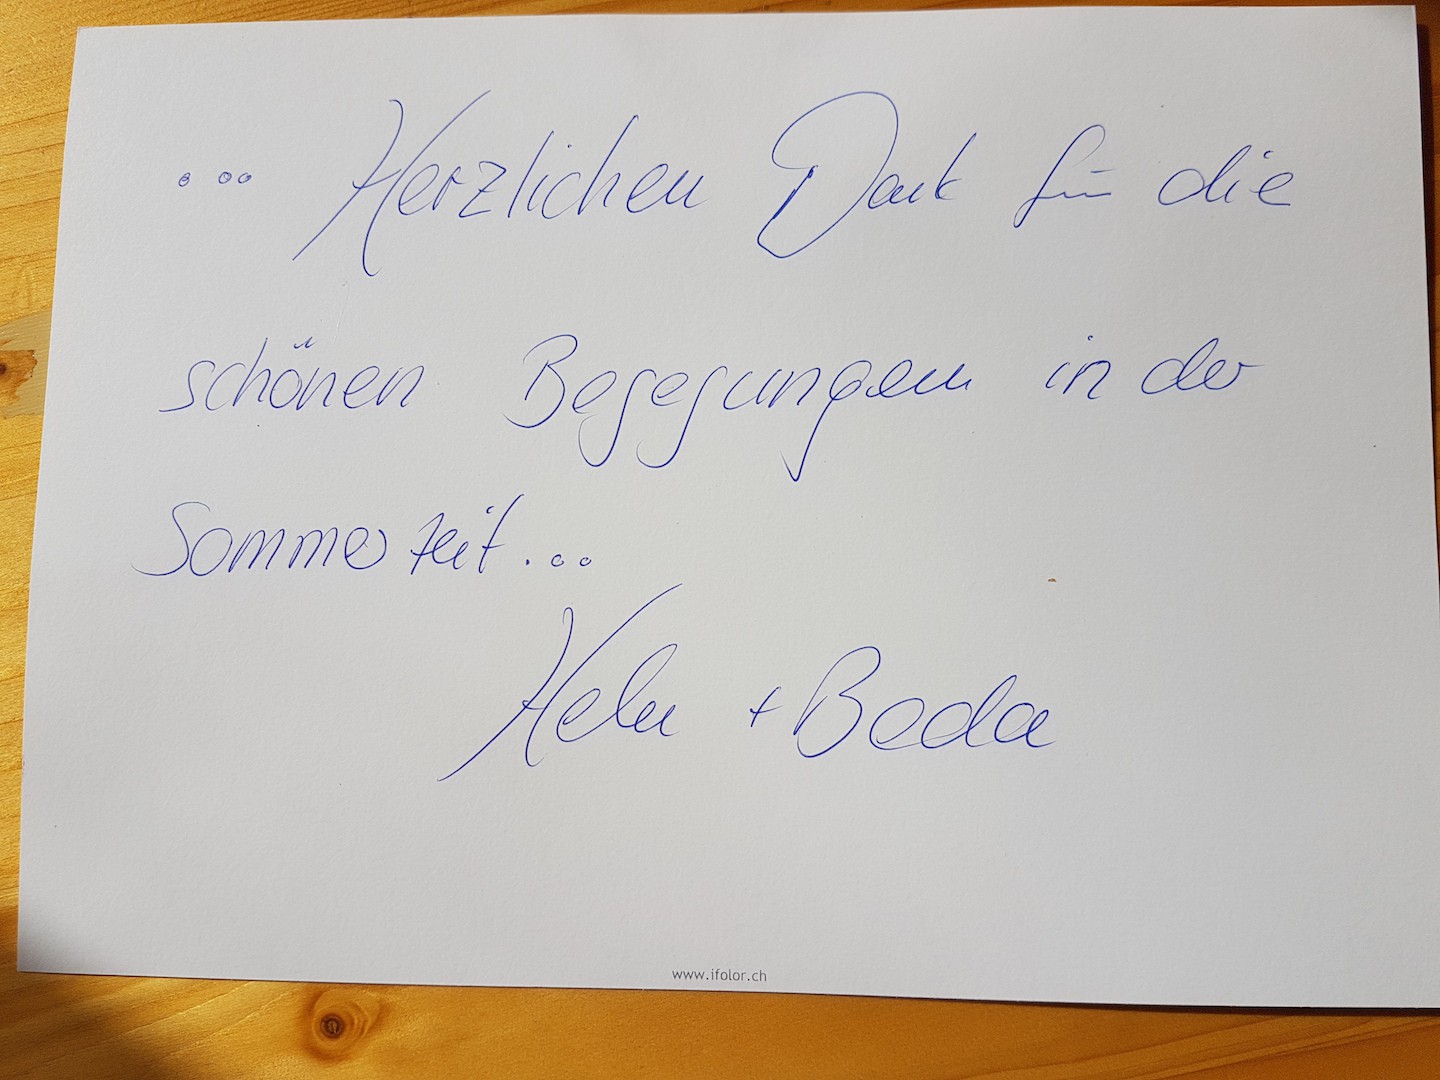 ... Herzlichen Dank für die
schönen Begegungen in der
Sommerzeit...
+ Beda
www.ifolor.ch